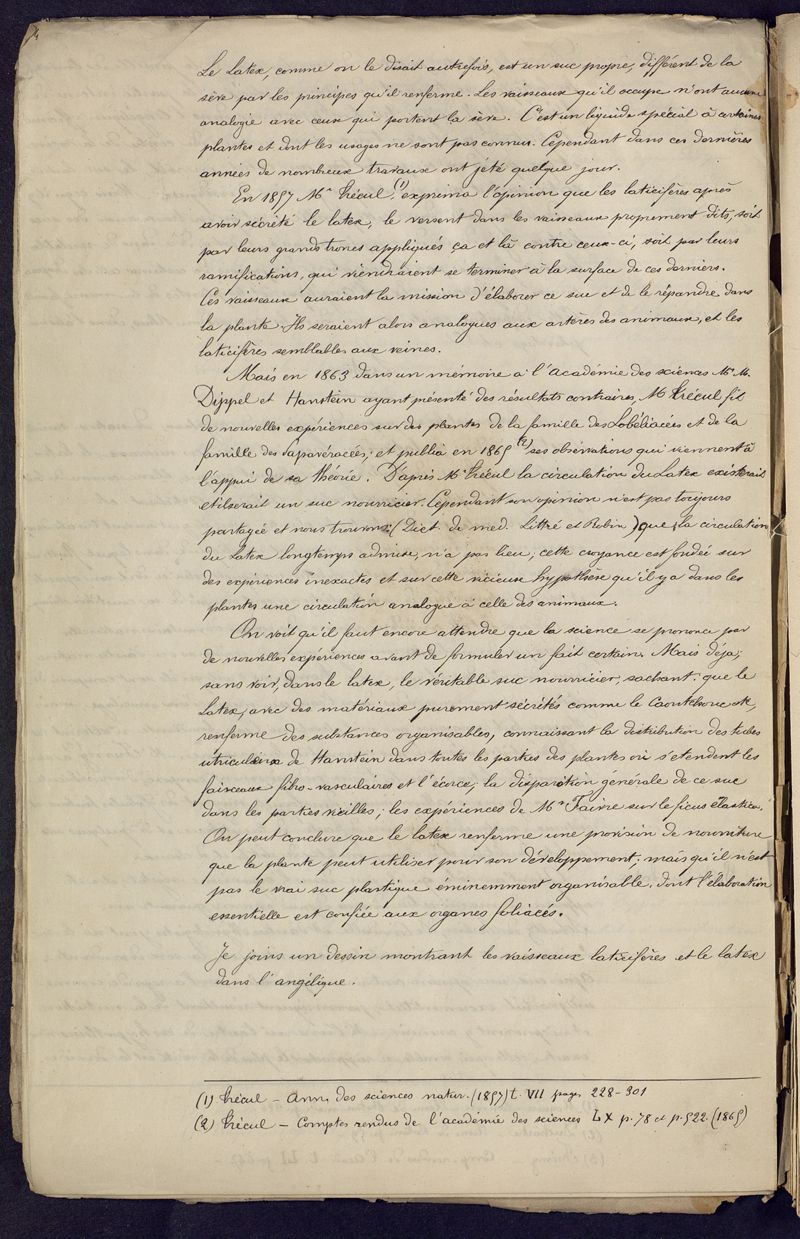 Le Latex, comme on le disait autrefois, est un suc propre, différent de la
sève par les principes qu'il renferme. Les vaisseaux qu'il occupe n'ont aucune
analogie avec ceux qui portent la sève. C'est un liquide spécial à certaines
plantes et dont les usages ne sont pas connus. Cependant dans ces dernières
années de nombreux travaux ont jeté quelque jour.
En 1857 Mr Trécul (1) exprima l'opinion que les laticifères après
avoir sécrété le latex, le versent dans les vaisseaux proprement dits, soit
par leurs grands troncs appliqués ça et là contre ceux-ci, soit par leurs
ramifications, qui viendraient se terminer à la surface de ces derniers.
Ces vaisseaux auraient la mission d'élaborer ce suc et de le répandre dans
la plante. Ils seraient alors analogues aux artères des animaux, et les
laticifères semblables aux veines.
Mais en 1863 dans un mémoire à l'Académie des sciences Mr M.
Dippel et Hanstein ayant présenté des résultats contraires, Mr Trécul fit
de nouvelles expériences sur des plantes de la famille des Lobéliacées et de la
famille des papavéracées; et publia en 1865 (2) ses observations qui viennent à
l'appui de sa théorie. D'après Mr Trécul la circulation du Latex existerait
et il serait un suc nourricier. Cependant son opinion n'est pas toujours
partagée et nous trouvons (Dict. de med. Littré et Robin) que la circulation
du Latex longtemps admise, n'a pas lieu, cette croyance est fondée sur
des expériences inexactes et sur cette vicieuse hypothèse qu'il y a dans les
plantes une circulation analogue à celle des animaux.
On voit qu'il faut encore attendre que la science se prononce par
de nouvelles expériences avant de formuler un fait certain. Mais déja,
sans voir, dans le latex, le véritable suc nourricier, sachant que le
Latex, avec des matériaux purement sécrétés comme le Caoutchouc etc,
renferme des substances organisables, connaissant la distribution des tubes
utriculeux de Hanstein dans toutes les parties des plantes où s'etendent les
faisceaux fibro-vasculaires et l'écorce; la disparition générale de ce suc
dans les parties vieilles; les expériences de Mr Faivre sur le ficus elastica.
On peut conclure que le latex renferme une provision de nourriture
que la plante peut utiliser pour son développement; mais qu'il n'est
pas le vrai suc plastique éminemment organisable, dont l'élaboration
essentielle est confiée aux organes foliacés.
Je joins un dessin montrant les vaisseaux laticifères et le latex
dans l'angélique.
(1) Trécul – Ann. des sciences natur. (1857) t. VII pages 228-301
(2) Trécul – Comptes rendus de l'académie des sciences LX p. 78 et p. 522. (1865)